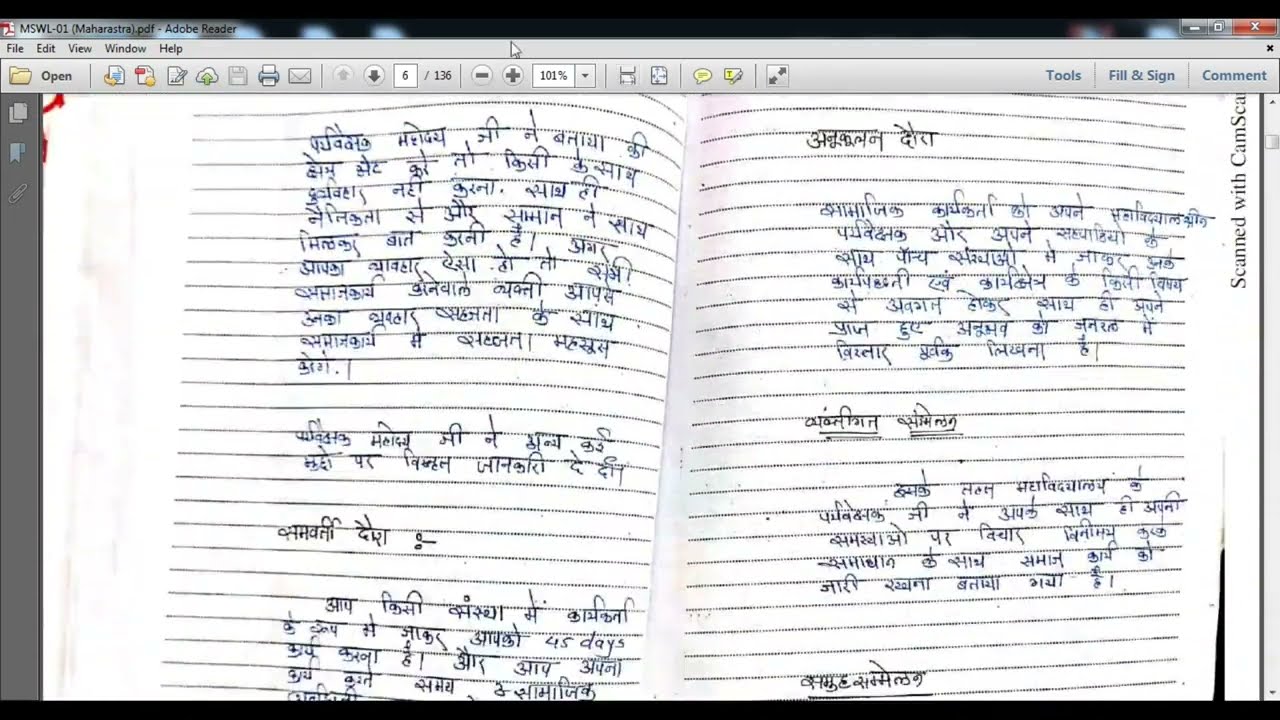 MSWL-01 (Maharastra).pdf - Adobe Reader
File Edit View Window Help
Open 6 / 136 101% Tools Fill & Sign Comment
पर्यवेक्षक महोदय जी ने बताया की
भेट करे तो किसी के साथ
दुर्व्यवहार नहीं करना. साथ ही
नैतिकता से और सम्मान ने साथ
मिलकर बात करनी है। अगर
आपका व्यवहार ऐसा हो तो सभी
समाजकार्य व्यक्ती आपसे
उनका व्यवहार सहजता के साथ
समाजकार्य में सहजता महसूस
करेगे.।
पर्यवेक्षक महोदय जी ने अन्य कई
मुद्दे पर विस्तृत जानकारी दे दी।
समवर्ती दौरा :-
आप किसी संस्था में कार्यकर्ता
के रूप में जाकर आपको 45 days
कार्य करना है। और आप अपना
कार्य करते समय सामाजिक
अनुकूलन दौरा
सामाजिक कार्यकर्ता को अपने महाविद्यालयीन
पर्यवेक्षक और अपने सहपाठियो के
साथ पाँच संस्थाओ में जाकर उनके
कार्यपध्दती एवं कार्यक्षेत्र के किसी विषय
से अवगत होकर साथ ही अपने
प्राप्त हुए अनुभव को जनरल में
विस्तार पूर्वक लिखना है।
व्यक्तीगत संमेलन
इसके तहत महाविद्यालय के
पर्यवेक्षक जी ने आपके साथ ही अपनी
समस्याओ पर विचार विनीमय करके
समाधान के साथ समान कार्य को
जारी रखना बताया गया है।
समुह सम्मेलन
Scanned with CamSca